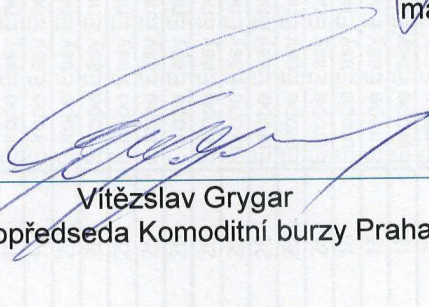 Vítězslav Grygar
opředseda Komoditní burzy Praha